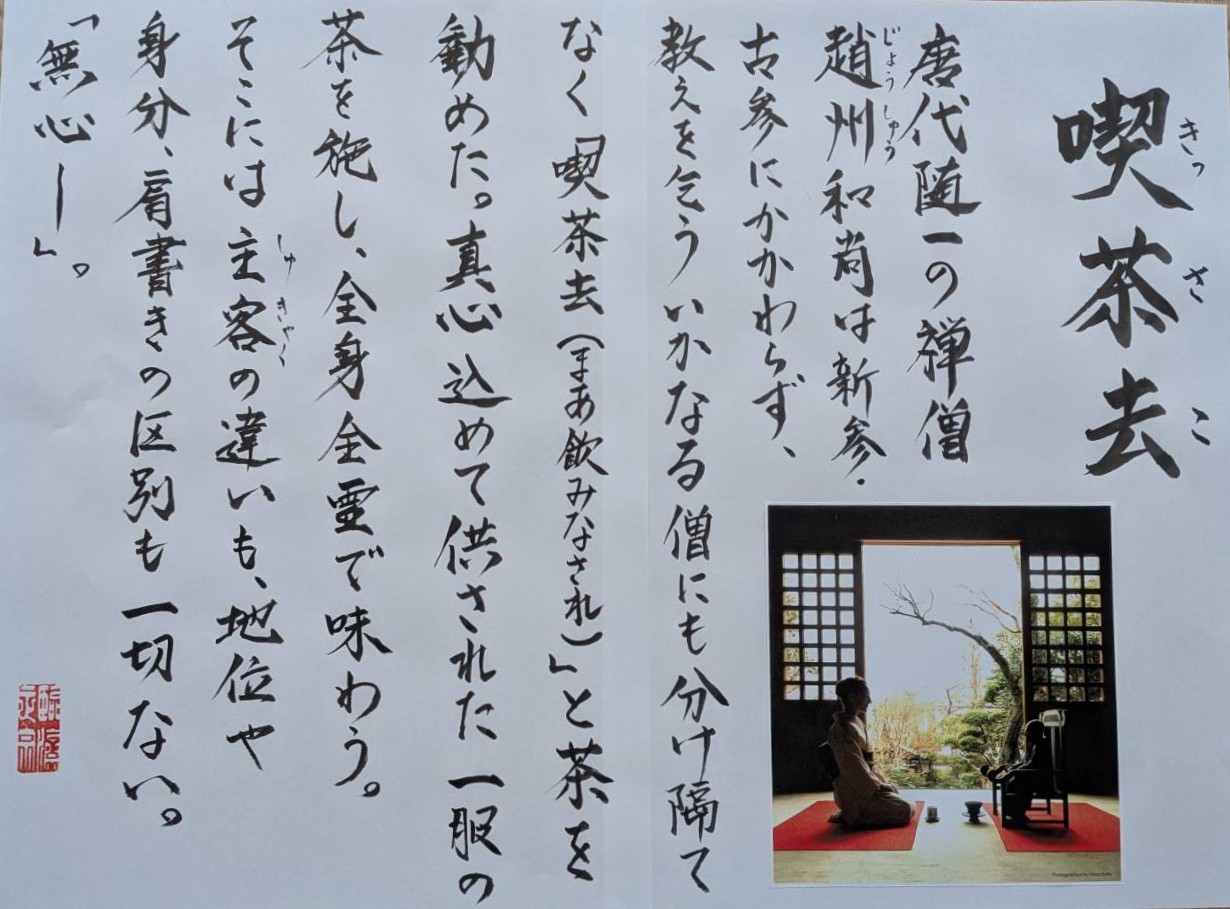 喫茶去
きっ
さ
こ
唐代随一の禅僧
趙州和尚は新参・
じょうしゅう
古参にかかわらず、
教えを乞ういかなる僧にも分け隔て
なく「喫茶去(まあ飲みなされ)」と茶を
勧めた。真心込めて供された一服の
茶を施し、全身全霊で味わう。
そこには主客の違いも、地位や
しゅきゃく
身分、肩書きの区別も一切ない。
「無心ー」。